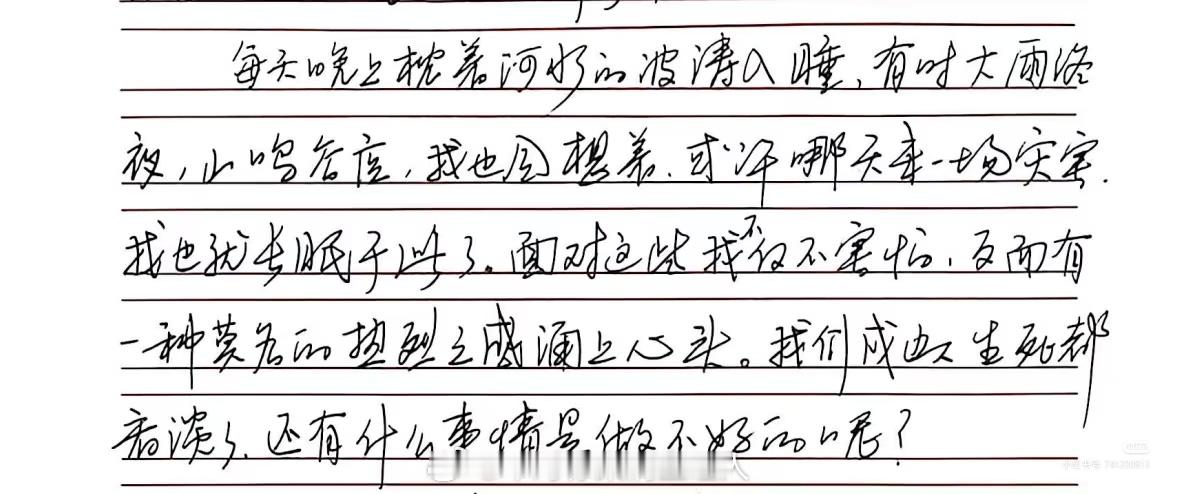 每天晚上枕着河水的波涛入睡，有时大雨滂
夜，山鸣谷应，我也会想着，或许哪天来一场灾害，
我也就长眠于此了。面对这些我不仅不害怕，反而有
一种莫名的热烈之感涌上心头。我们成边人生死都
看淡了，还有什么事情是做不好的呢？
小红书
小红书号：741200913